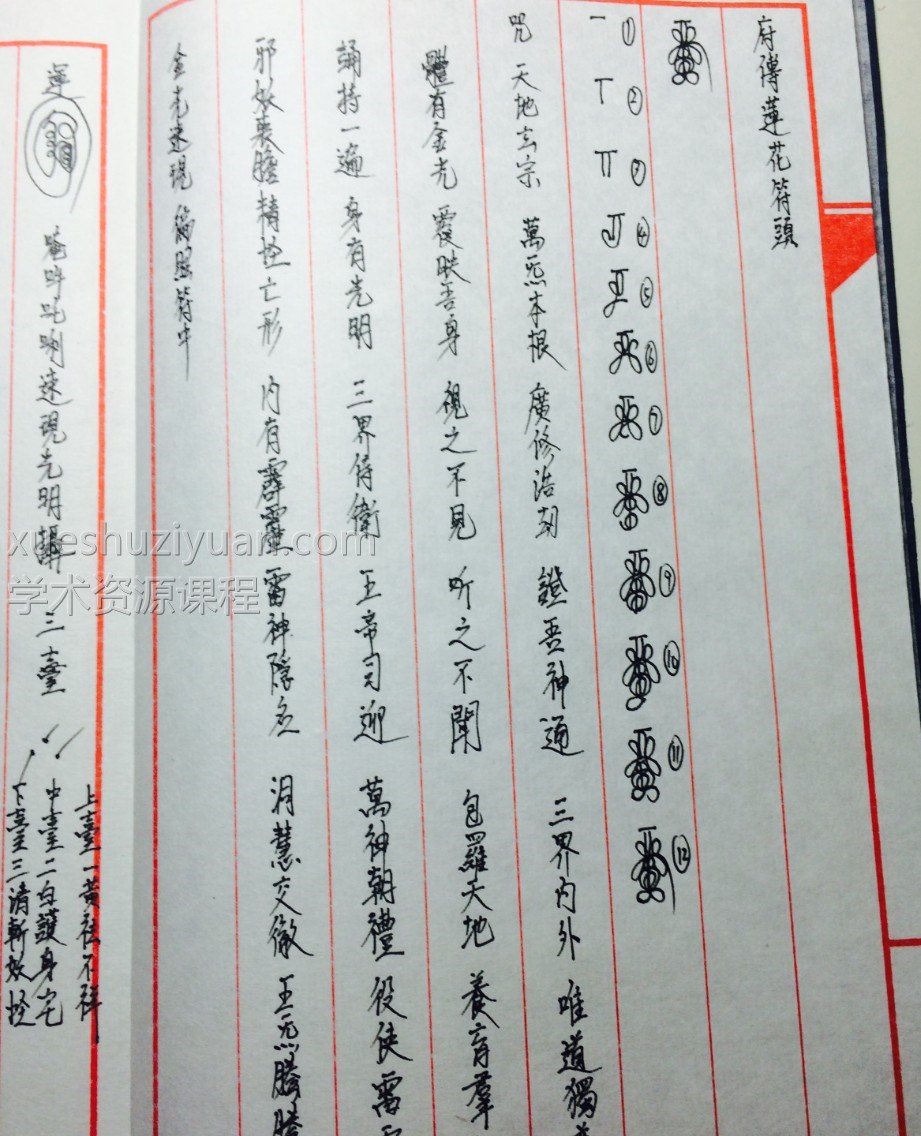 府傳蓮花符頭
① ② ③ ④ ⑤ ⑥ ⑦ ⑧ ⑨ ⑩ ⑪ ⑫
咒 天地玄宗 萬炁本根 廣修浩劫 證吾神通 三界內外 唯道獨
體有金光 覆映吾身 視之不見 听之不聞 包羅天地 養育羣
誦持一遍 身有光明 三界侍衛 五帝司迎 萬神朝禮 役使雷
邪妖喪膽 精怪亡形 內有霹靂 雷神隱名 洞慧交徹 五炁騰騰
金光速現 符中
速現光明攝 三臺
上臺一黃祛不祥
中臺二白護身宅
下臺三清斬妖怪
xueshuziyuan.com
学术资源课程